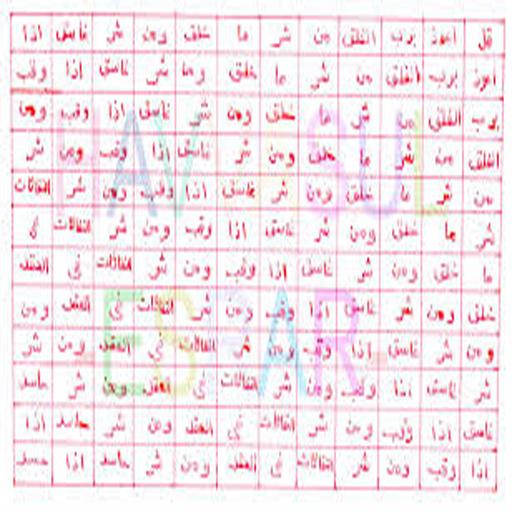 قل اعوذ برب الفلق من شر ما خلق ومن شر غاسق اذا
اعوذ برب الفلق من شر ما خلق ومن شر غاسق اذا وقب
برب الفلق من شر ما خلق ومن شر غاسق اذا وقب ومن
الفلق من شر ما خلق ومن شر غاسق اذا وقب ومن شر
من شر ما خلق ومن شر غاسق اذا وقب ومن شر النفاثات
شر ما خلق ومن شر غاسق اذا وقب ومن شر النفاثات في
ما خلق ومن شر غاسق اذا وقب ومن شر النفاثات في العقد
خلق ومن شر غاسق اذا وقب ومن شر النفاثات في العقد ومن
ومن شر غاسق اذا وقب ومن شر النفاثات في العقد ومن شر
شر غاسق اذا وقب ومن شر النفاثات في العقد ومن شر حاسد
غاسق اذا وقب ومن شر النفاثات في العقد ومن شر حاسد اذا
اذا وقب ومن شر النفاثات في العقد ومن شر حاسد اذا حسد